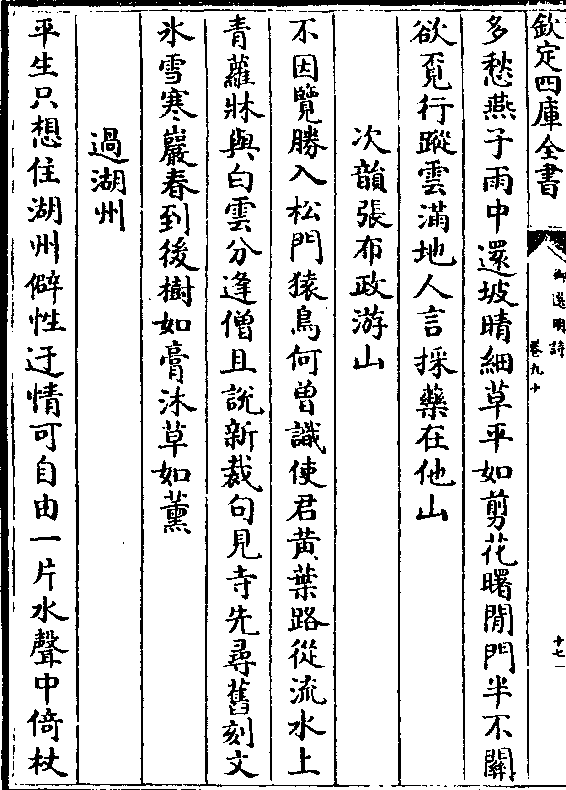 欽定四庫全書
御選明詩
卷九十
十七
多愁燕子雨中還坡晴細草平如剪花曙閒門半不關
欲覓行蹤雲滿地人言採藥在他山
次韻張布政游山
不因覽勝入松門猿鳥何曾識使君黄葉路從流水上
青蘿牀與白雲分逢僧且說新裁句見寺先尋舊刻文
氷雪寒巖春到後樹如膏沐草如薰
過湖州
平生只想住湖州僻性迂情可自由一片水聲中倚杖